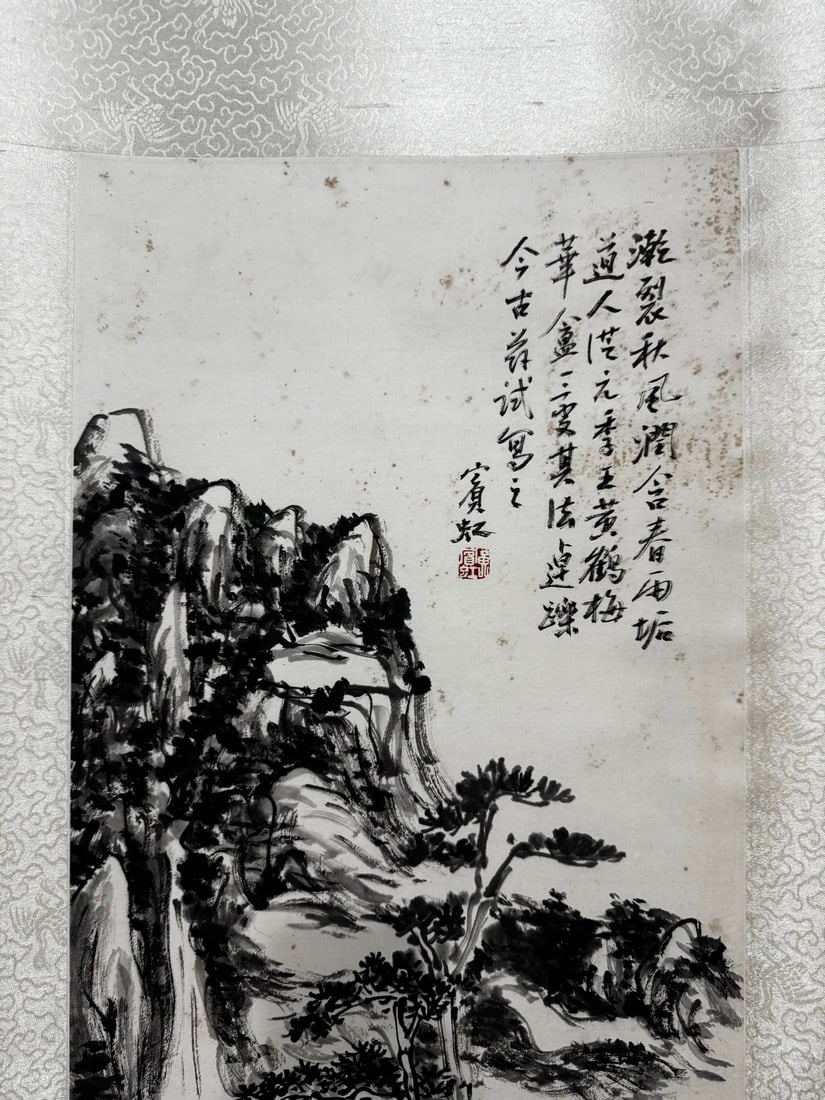 漧裂秋風潤含春雨垢
道人從元季王黃鶴梅
華盦三變其法逴躒
今古茲試寫之
賓虹
黃賓虹